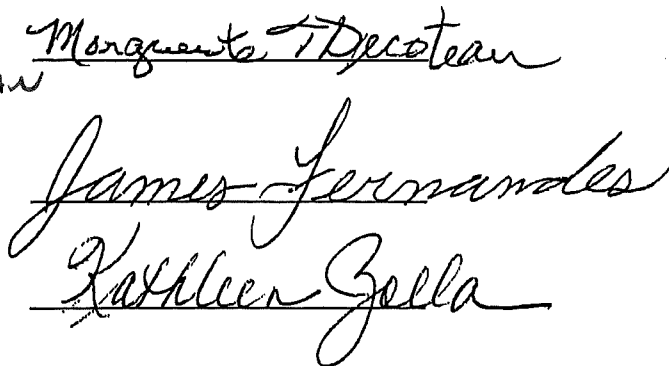 Marguerite T Decoteau
AN
James Fernandes
Kathleen Zolla